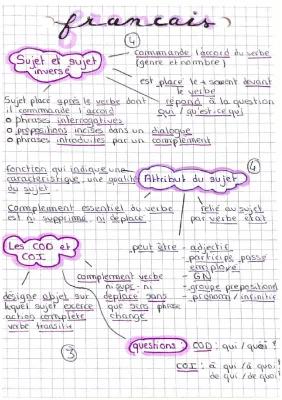 francais
④
Sujet et sujet inversé
commande l'accord du verbe
(genre et nombre)
est placé le + souvent devant
le verbe
répond à la question
qui / qu'est-ce qui
Sujet placé après le verbe dont
il commande l'accord
o phrases interrogatives
o propositions incises dans un dialogue
o phrases introduites par un complément
④
fonction qui indique une
caractéristique, une qualité
du sujet
Attribut du sujet
Complément essentiel du verbe
est ni supprimé, ni déplacé
relié au sujet
par verbe état
Les COD et
COI
peut être - adjectif
- participe passé
employé
- GN
- groupe prépositionnel
- pronom / infinitif
complément verbe
ni supp. ni
déplacé sans
que sens phrase
change
désigne objet sur
lequel sujet exerce
action complète
verbe transitif
③
questions
COD : qui / quoi ?
COI : à qui / à quoi ?
de qui / de quoi ?